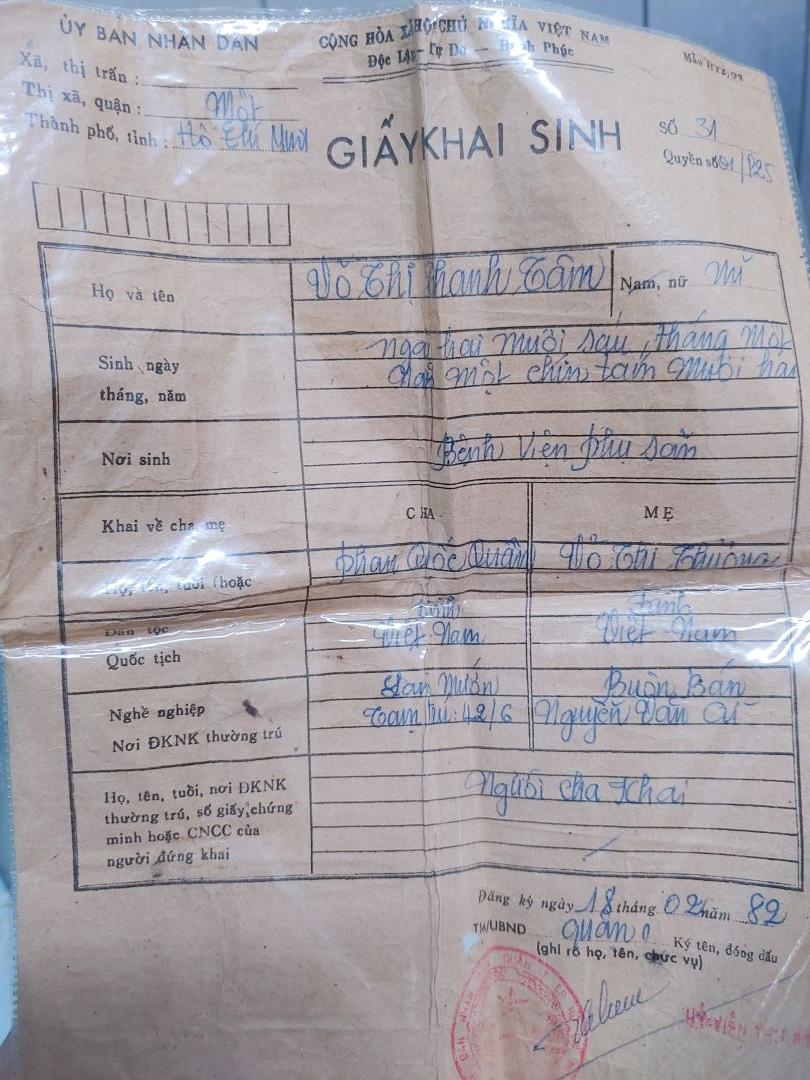 ỦY BAN NHÂN DÂN
Xã, thị trấn :
Thị xã, quận : Một
Thành phố, tỉnh : Hồ Chí Minh
CỘNG HÒA XÃ HỘI CHỦ NGHĨA VIỆT NAM
Độc Lập – Tự Do – Hạnh Phúc
GIẤY KHAI SINH
Số 31
Quyển số 01/P25
Họ và tên Võ Thị Thanh Tâm Nam, nữ Nữ
Sinh ngày tháng, năm
ngày hai mươi sáu, tháng Một
Năm một chín tám mươi hai
Nơi sinh Bệnh Viện phụ sản
Khai về cha mẹ CHA MẸ
Họ, tên, tuổi (hoặc Phan Quốc Quân Võ Thị Thương
Dân tộc Kinh Kinh
Quốc tịch Việt Nam Việt Nam
Nghề nghiệp Buôn Bán
Nơi ĐKNK thường trú Tạm trú: 42/6 Nguyễn Văn Cừ
Họ, tên, tuổi, nơi ĐKNK
thường trú, số giấy chứng
minh hoặc CNCC của
người đứng khai
Người cha khai
Đăng ký ngày 18 tháng 02 năm 82
TM/UBND quận 1 Ký tên, đóng dấu
(ghi rõ họ, tên, chức vụ)